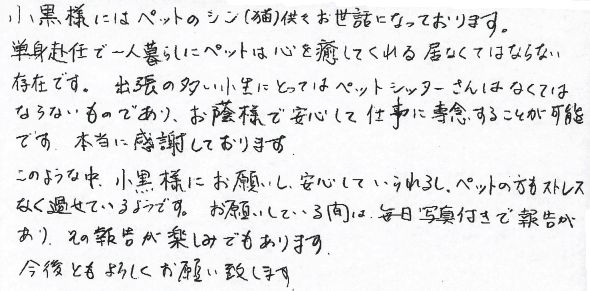 小黒様にはペットのシン(猫)供々お世話になっております。
単身赴任で一人暮らしにペットは心を癒してくれる居なくてはならない
存在です。出張の多い小生にとってはペットシッターさんはなくては
ならないものであり、お蔭様で安心して仕事に専念することが可能
です。本当に感謝しております。
このような中、小黒様にお願いし、安心していられるし、ペットの方もストレス
なく過せているようです。お願いしている間は、毎日写真付きで報告が
あり、その報告が楽しみでもあります。
今後ともよろしくお願い致します